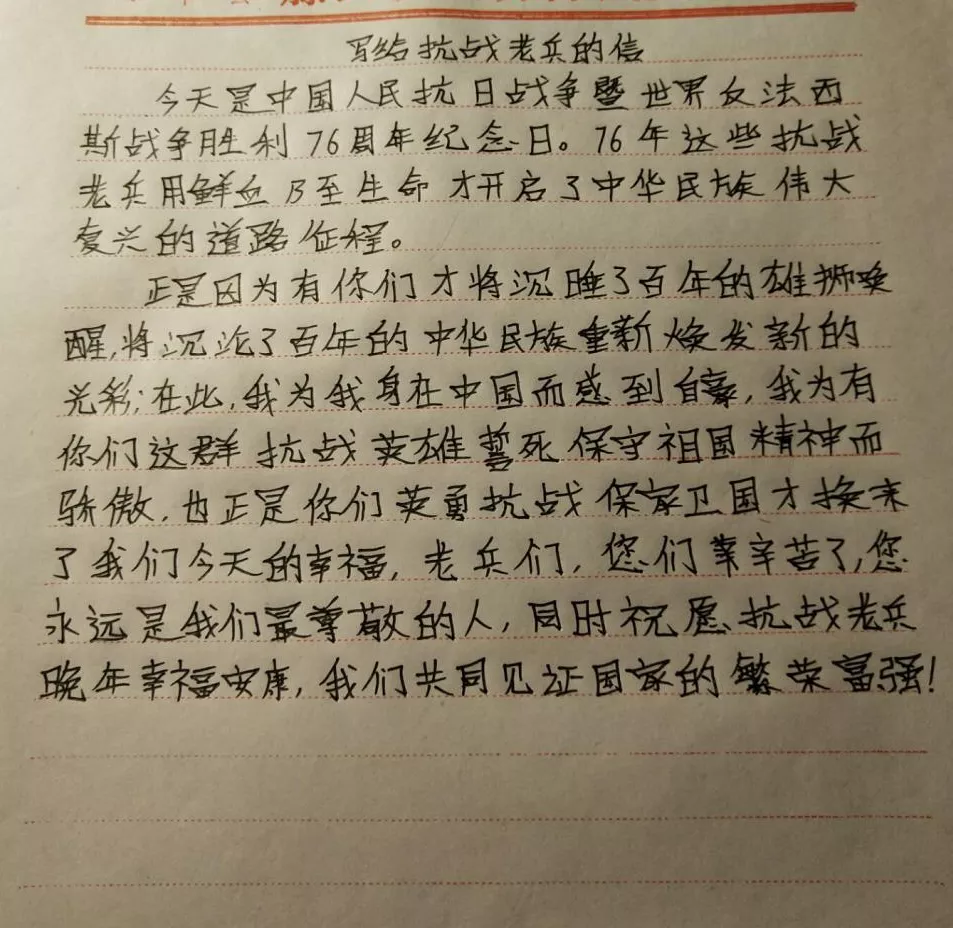 写给抗战老兵的信
今天是中国人民抗日战争暨世界反法西
斯战争胜利76周年纪念日。76年这些抗战
老兵用鲜血乃至生命才开启了中华民族伟大
复兴的道路征程。
正是因为有你们才将沉睡了百年的雄狮唤
醒,将沉沦了百年的中华民族重新焕发新的
光彩;在此,我为我身在中国而感到自豪,我为有
你们这群抗战英雄誓死保守祖国精神而
骄傲,也正是你们英勇抗战保家卫国才换来
了我们今天的幸福,老兵们,您们辛苦了,您
永远是我们最尊敬的人,同时祝愿抗战老兵
晚年幸福安康,我们共同见证国家的繁荣富强!